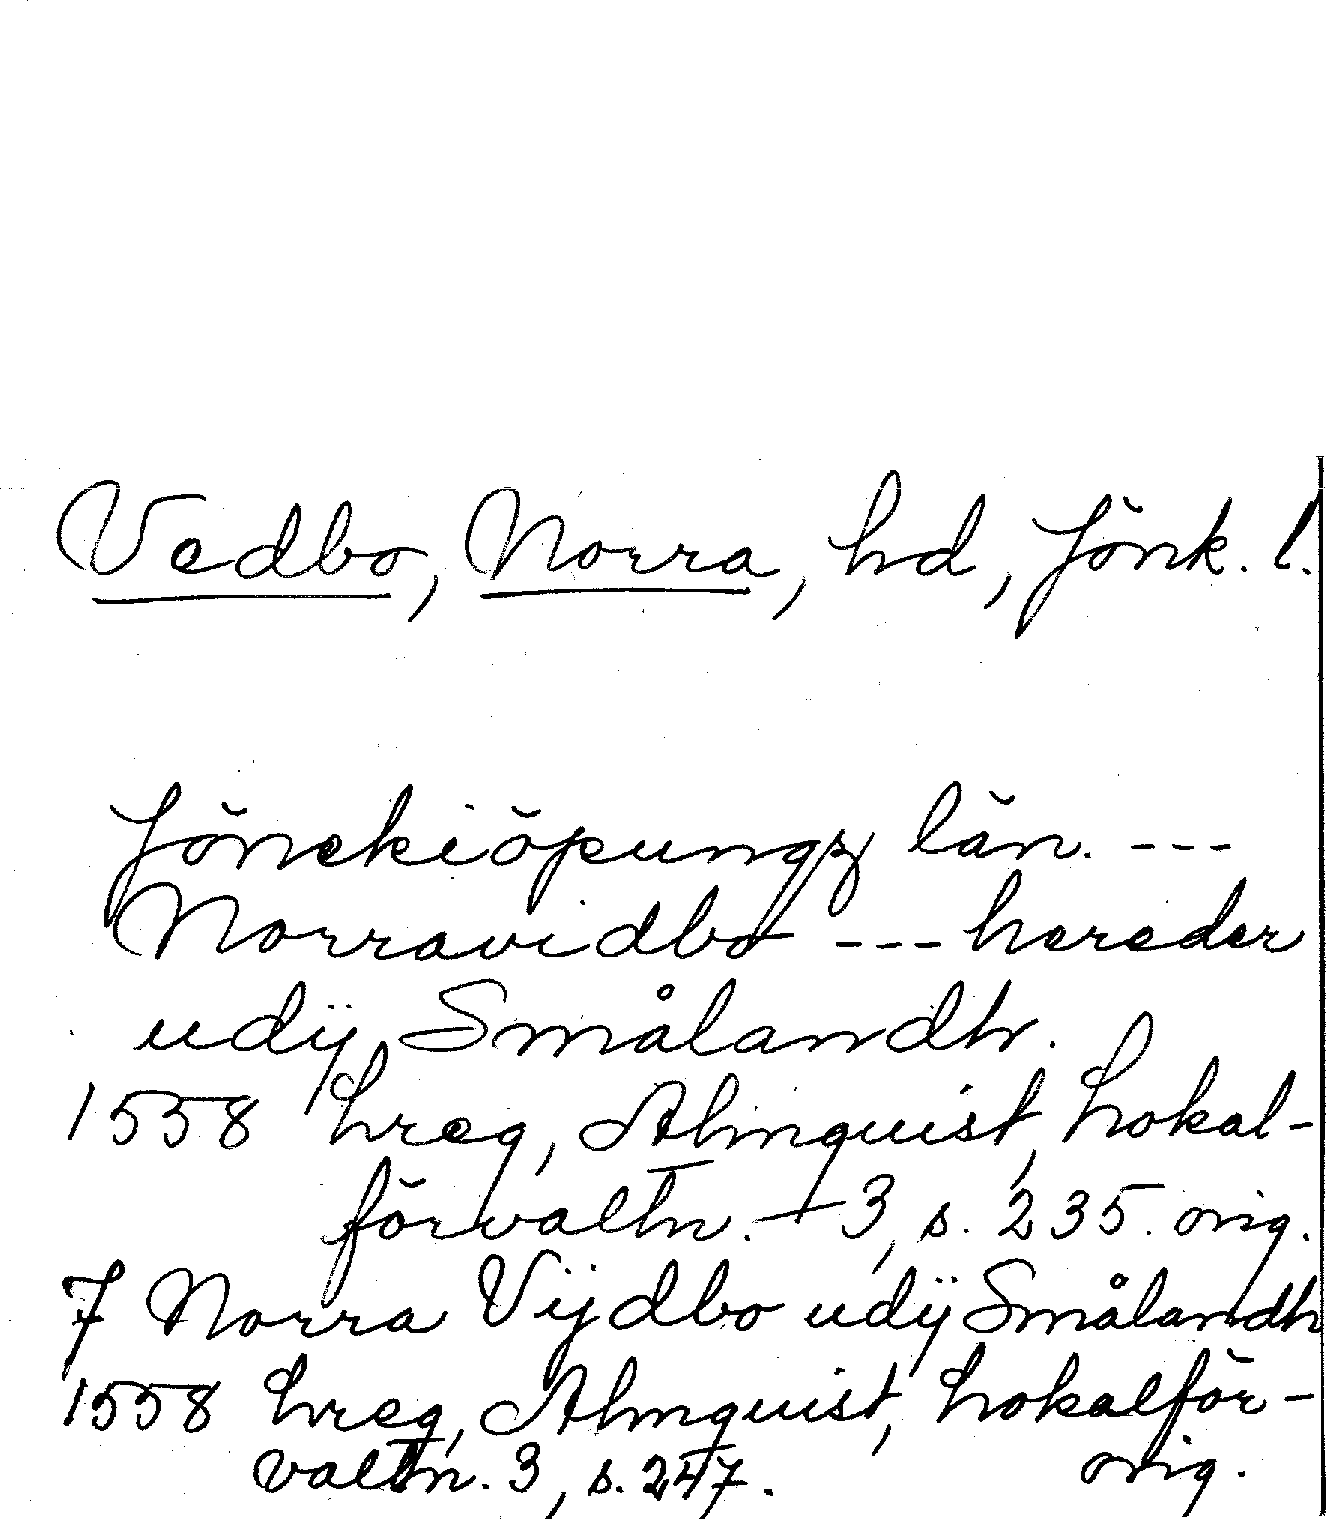 Vedbo, Norra, hd, Jönk. l.
Jönekiöpungz län. ---
Norravidbo --- hereder
udÿ Smålandh.
1558 hreg, Almquist, Lokal-
förvaltn. 3, s. 235. orig.
J Norra Vijdbo udÿ Smålandh
1558 hreg, Almquist, Lokalför-
valtn. 3, s. 247. orig.